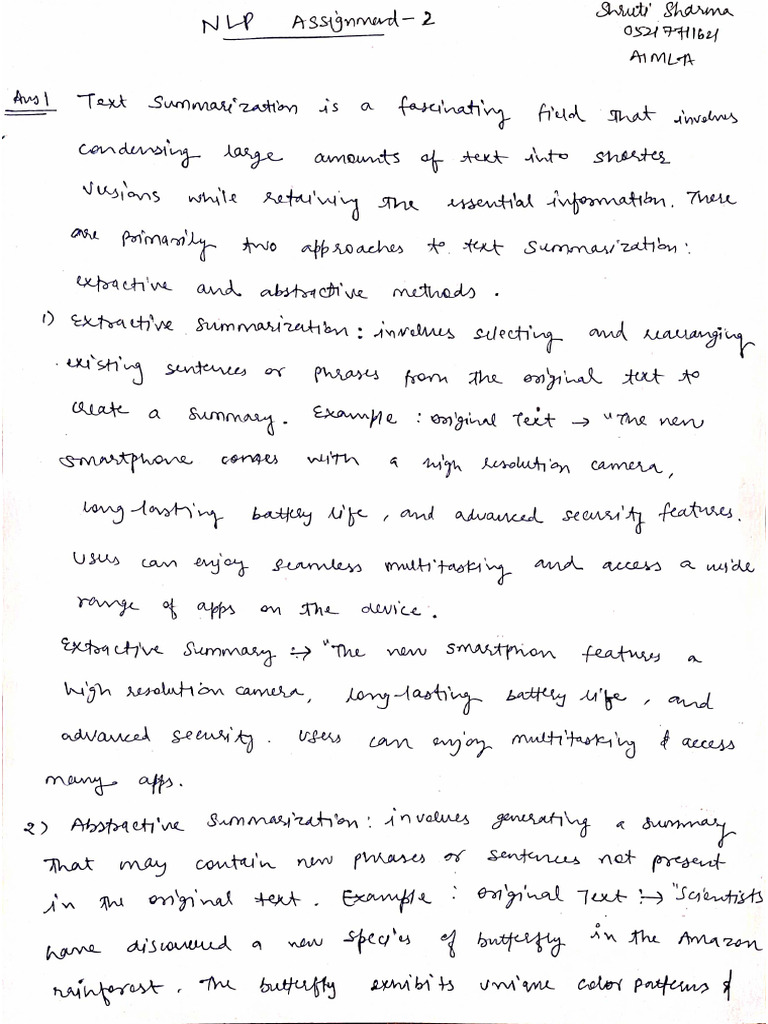 NLP Assignment-2
Shruti Sharma
05217711621
AIML-A
Ans1 Text Summarization is a fascinating field that involves
condensing large amounts of text into shorter
versions while retaining the essential information. There
are primarily two approaches to text summarization:
extractive and abstractive methods.
1) Extractive summarization: involves selecting and rearranging
existing sentences or phrases from the original text to
create a summary. Example: original Text → "The new
smartphone comes with a high resolution camera,
long-lasting battery life, and advanced security features.
Users can enjoy seamless multitasking and access a wide
range of apps on the device.
Extractive Summary :→ "The new smartphion features a
high resolution camera, long-lasting battery life, and
advanced security. Users can enjoy multitasking & access
many apps.
2) Abstractive Summarization: involves generating a summary
that may contain new phrases or sentences not present
in the original text. Example: original Text :→ "Scientists
have discovered a new species of butterfly in the Amazon
rainforest. The butterfly exhibits unique color patterns &